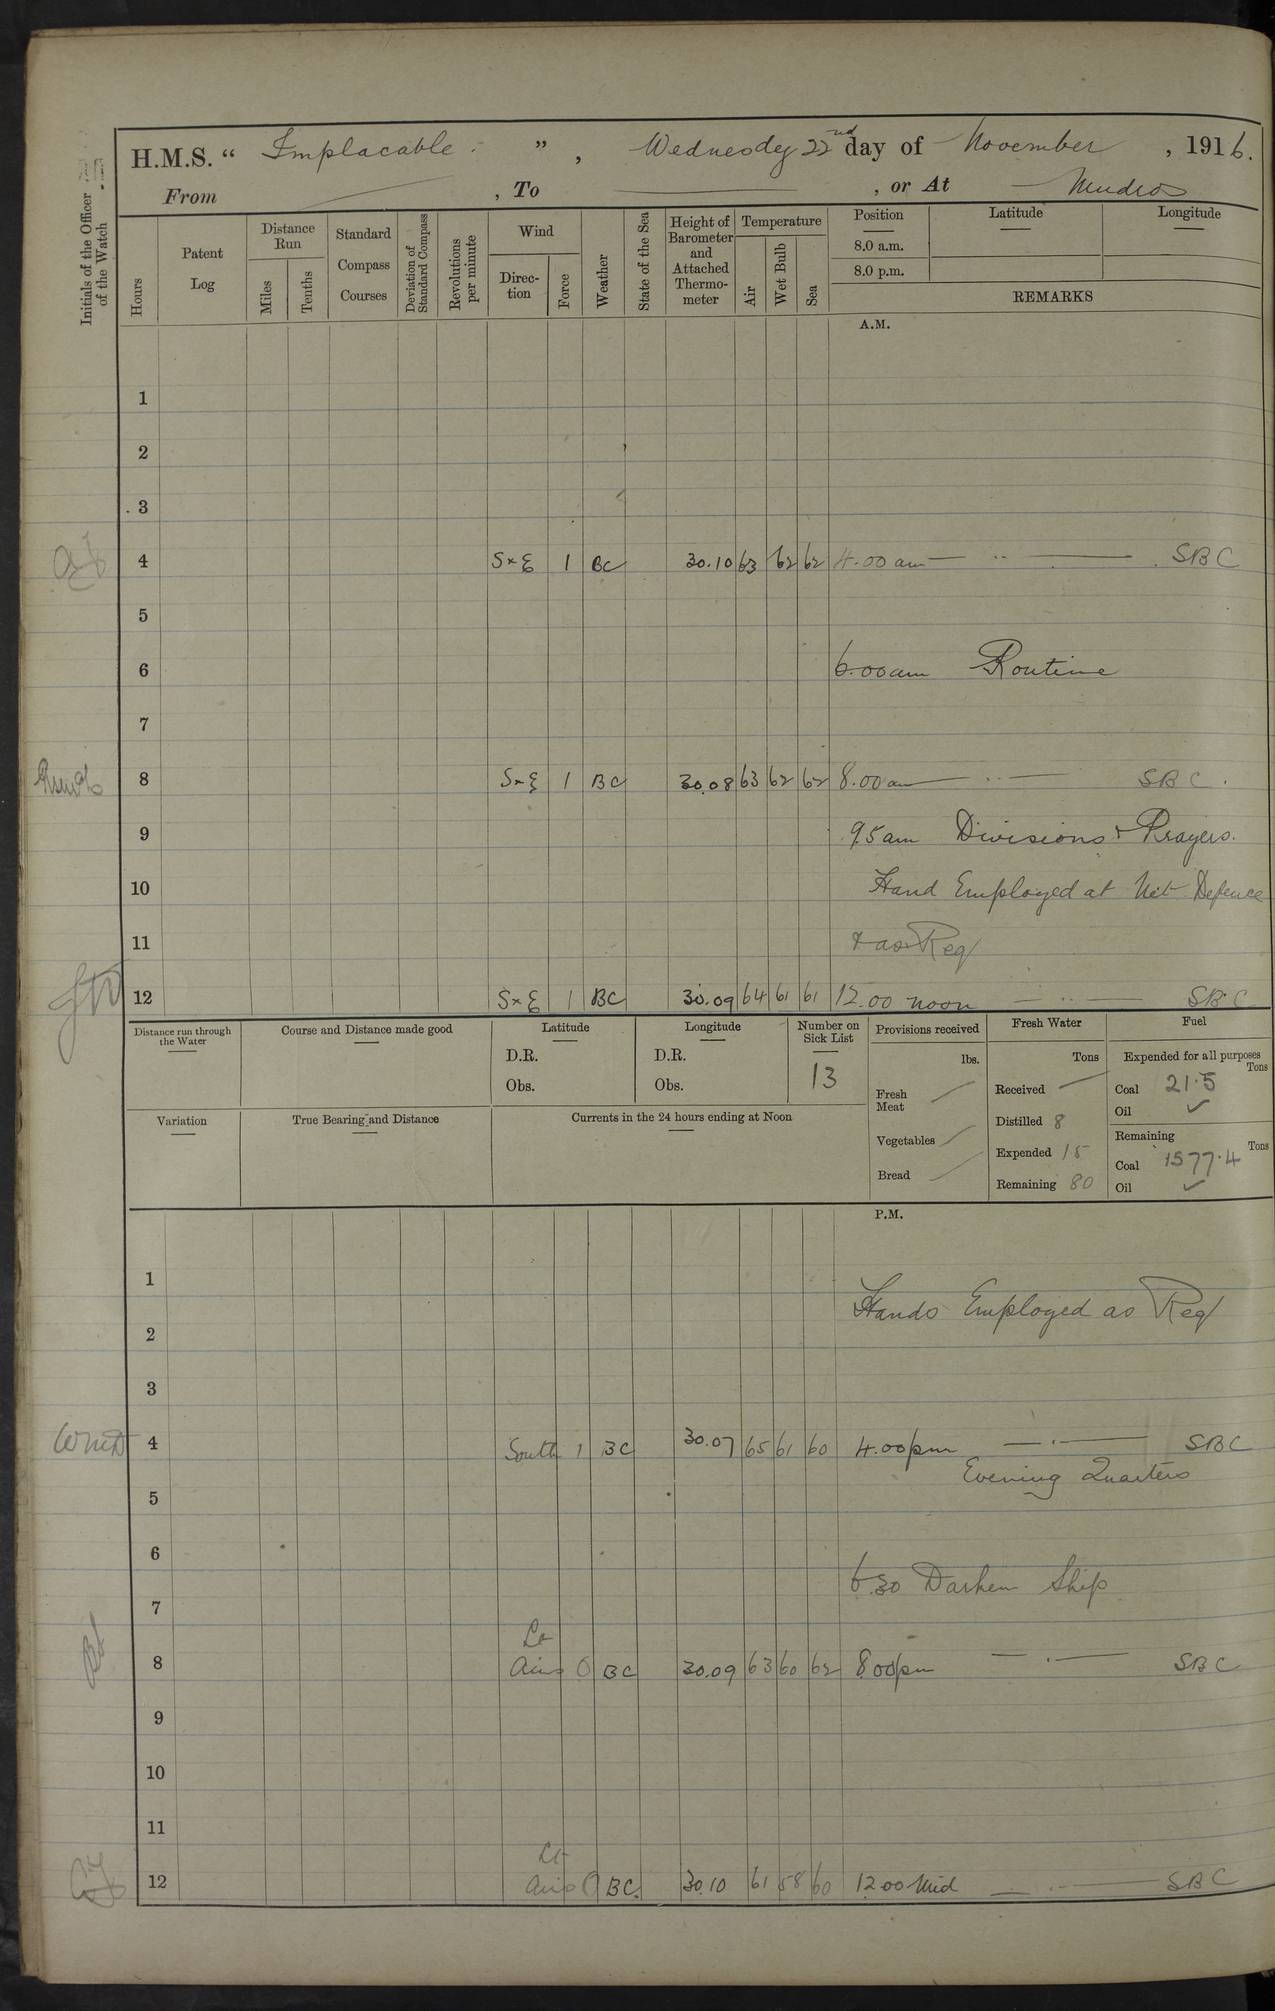 H.M.S. “ Implacable. ” , Wednesdey 22nd day of November , 1916.
From , To , or At Mudros
Initials of the Officer of the Watch
Hours
Patent Log
Distance Run
Miles
Tenths
Standard Compass Courses
Deviation of Standard Compass
Revolutions per minute
Wind
Direc-tion
Force
Weather
State of the Sea
Height of Barometer and Attached Thermo-meter
Temperature
Air
Wet Bulb
Sea
Position Latitude Longitude
8.0 a.m.
8.0 p.m.
REMARKS
A.M.
1
2
3
4 S x E 1 BC 30.10 63 62 62 4.00 am — ·· — SBC
5
6 6.00 am Routine
7
8 S x E 1 BC 30.08 63 62 62 8.00 am — ·· — SBC.
9 9.5 am Divisions & Prayers.
10 Hand Employed at Net Defence
11 & as Req
12 S x E 1 BC 30.09 64 61 61 12.00 noon — ·· — SBC
Distance run through the Water
Course and Distance made good
Latitude
D.R.
Obs.
Longitude
D.R.
Obs.
Number on Sick List
13
Provisions received
lbs.
Fresh Meat
Vegetables
Bread
Fresh Water
Tons
Received
Distilled 8
Expended 15
Remaining 80
Fuel
Expended for all purposes
Tons
Coal 21.5
Oil ✓
Remaining
Tons
Coal 1577.4
Oil ✓
Variation
True Bearing and Distance
Currents in the 24 hours ending at Noon
P.M.
1
Hands Employed as Req
2
3
4 South 1 BC 30.07 65 61 60 4.00 pm — · — SBC
Evening Quarters
5
6
6.30 Darken Ship
7
8 Lt Airs 0 BC 30.09 63 60 62 8.00 pm — · — SBC
9
10
11
12 Lt Airs 0 BC. 30.10 61 58 60 12.00 Mid — · — SBC